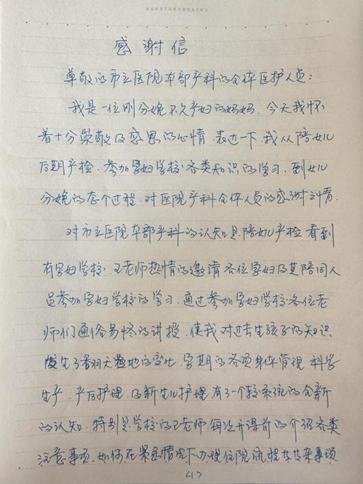 感谢信
尊敬的市立医院本部产科的全体医护人员：
我是一位刚分娩不久产妇的妈妈，今天我怀
着十分崇敬及感恩的心情，表达一下我从陪女儿
后期产检、参加孕妇学校各类知识的学习，到女儿
分娩的整个过程，对医院产科全体人员的感谢之情。
对市立医院本部产科的认知是陪女儿产检看到
有孕妇学校，王老师热情的邀请各位孕妇及其陪同人
员参加孕妇学校的学习，通过参加孕妇学校各位老
师们通俗易懂的讲授，使我对过去生孩子的知识
发生了翻天覆地的变化，孕期的各项身体管理、科学
生产、产后护理、及新生儿护理有了一个较系统的全新
的认知。特别是学校的王老师每次开课前的介绍各类
注意事项，如何在紧急情况下办理住院流程
(1)